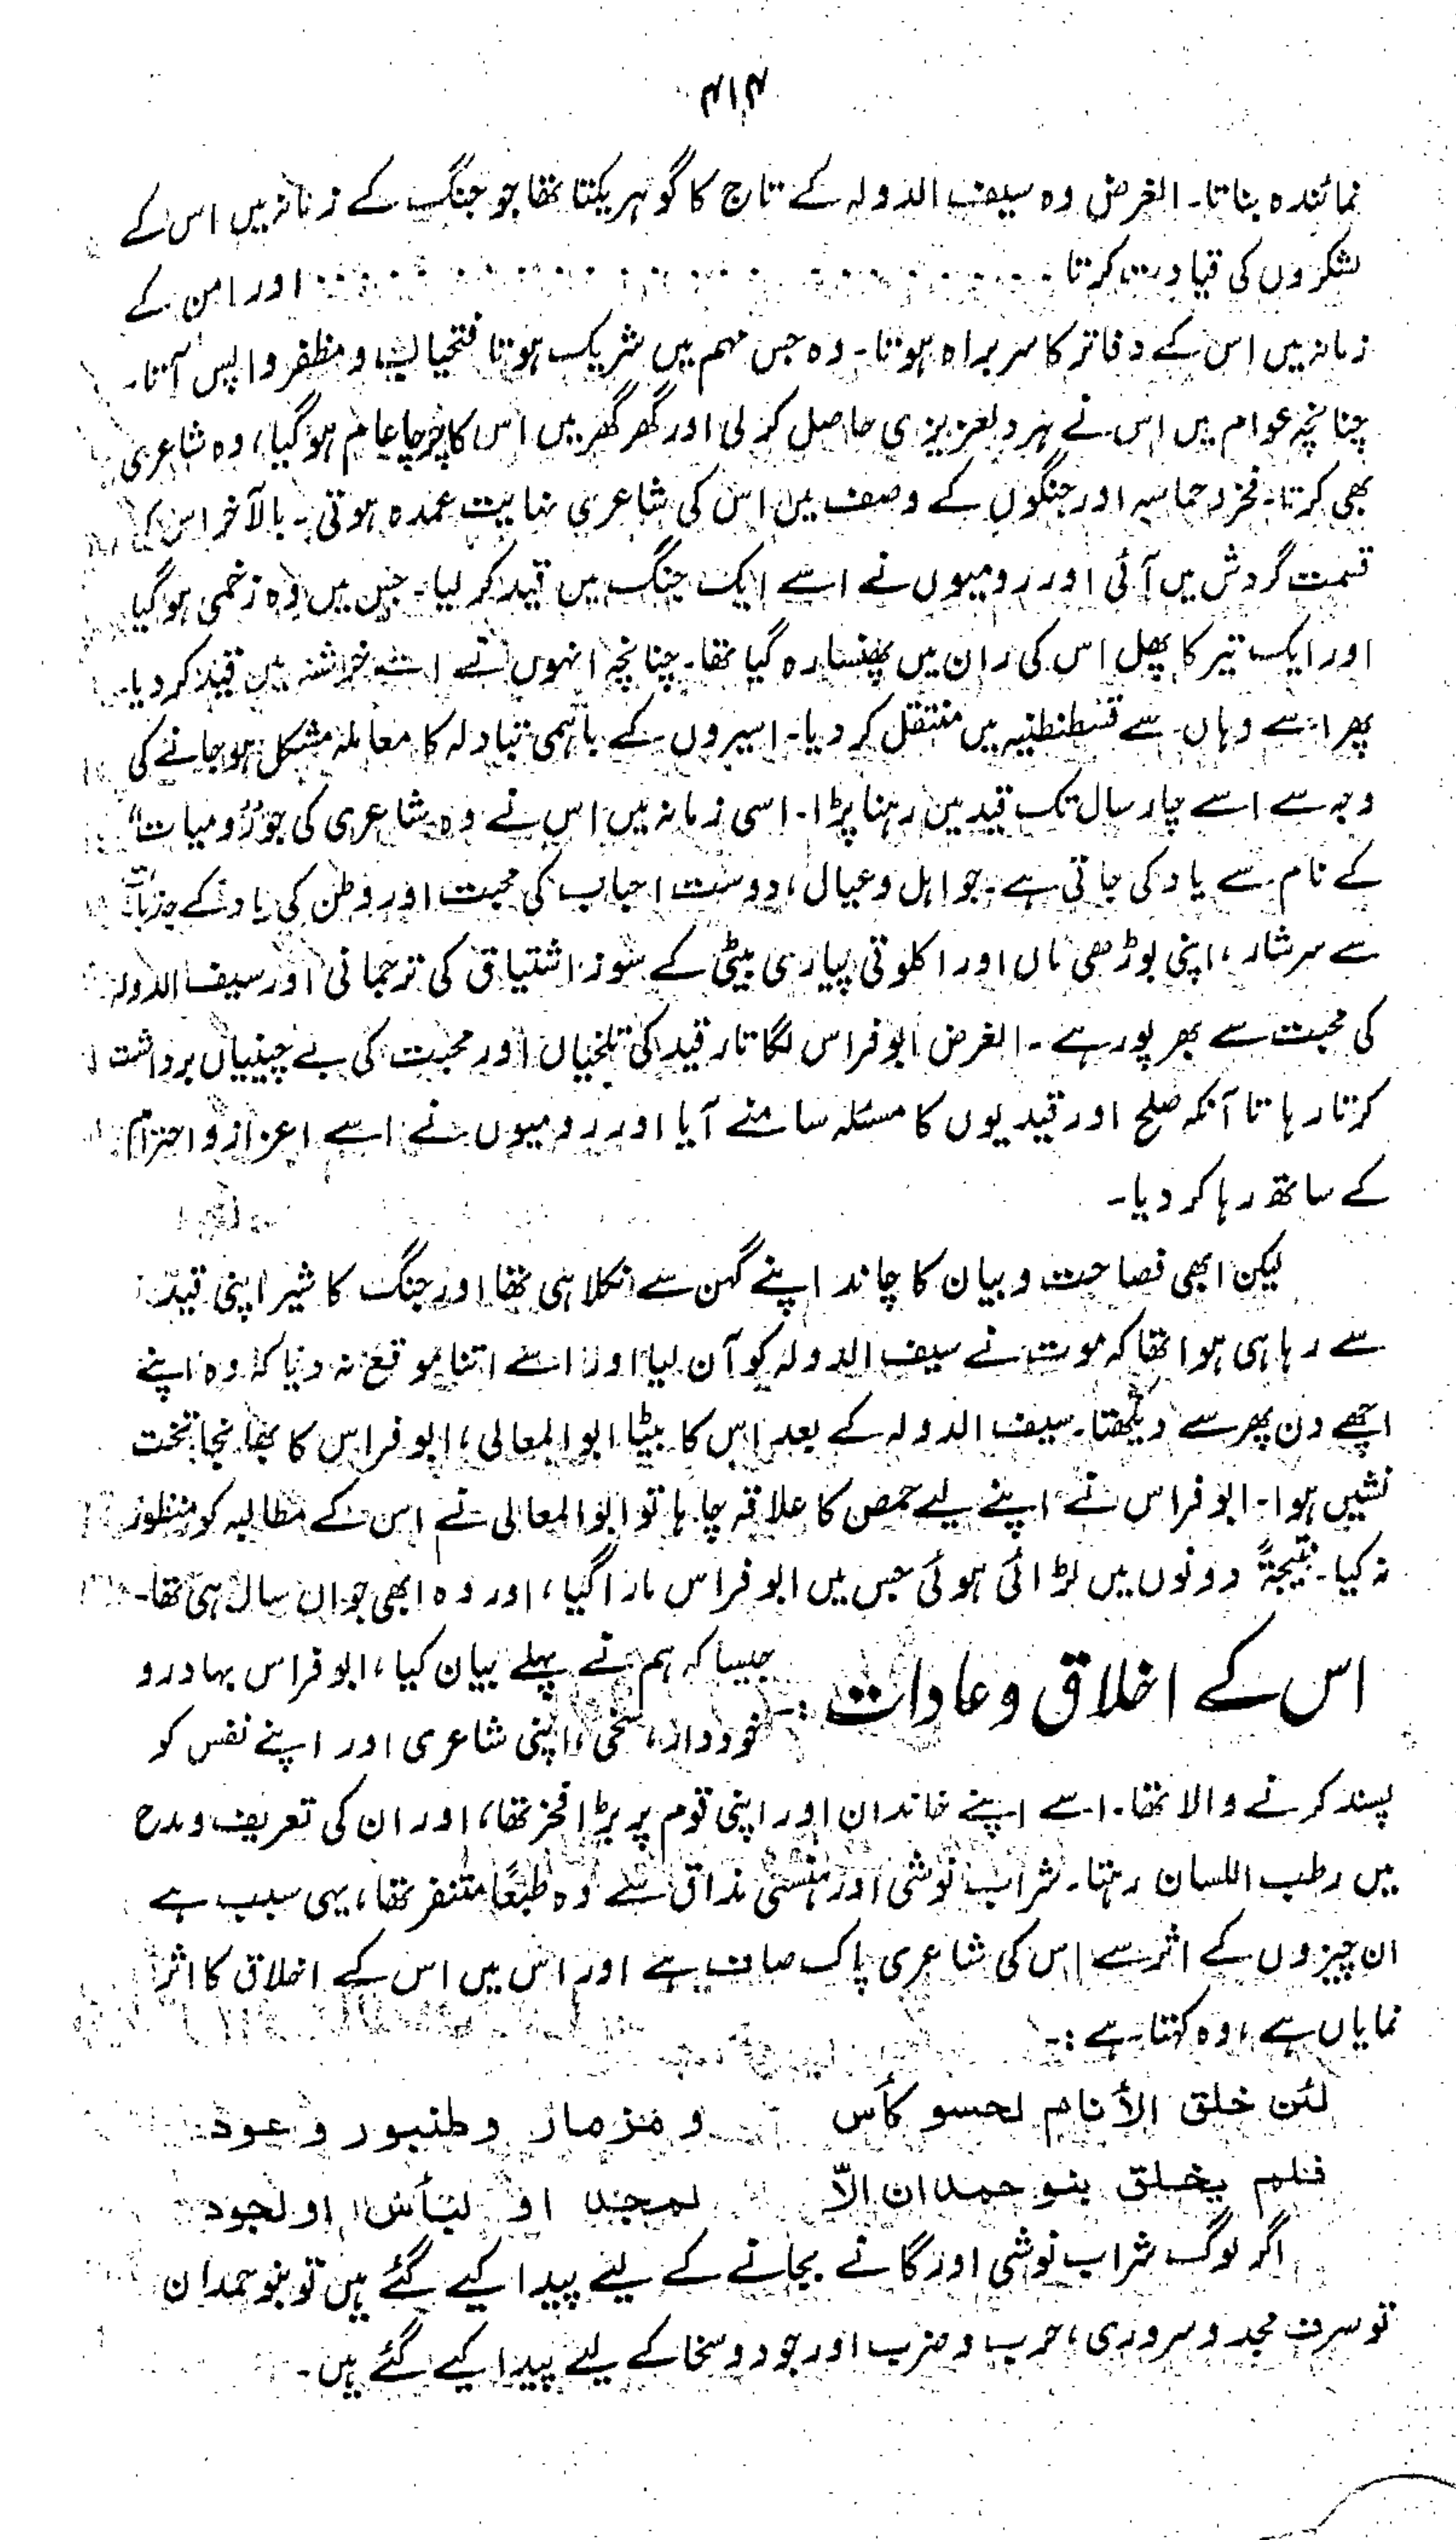 ۴۱۴
نمائندہ بناتا۔ الغرض وہ سیف الدولہ کے تاج کا گوہر یکتا تھا جو جنگ کے زمانہ میں اس کے
لشکروں کی قیادت کرتا ۔ . . . . . . . . . . . . . . . . . . . . اور امن کے
زمانہ میں اس کے دفاتر کا سربراہ ہوتا۔ وہ جس مہم میں شریک ہوتا فتحیاب و مظفر واپس آتا۔
چنانچہ عوام میں اس نے ہردلعزیزی حاصل کر لی اور گھر گھر میں اس کا چرچا عام ہو گیا، وہ شاعری
بھی کرتا۔ فخر و حماسہ اور جنگوں کے وصف میں اس کی شاعری نہایت عمدہ ہوتی۔ بالآخر اس کی
قسمت گردش میں آئی اور رومیوں نے اسے ایک جنگ میں قید کر لیا۔ جس میں وہ زخمی ہو گیا
اور ایک تیر کا پھل اس کی ران میں پھنسا رہ گیا تھا۔ چنانچہ انہوں نے اسے خرشنہ میں قید کر دیا۔
پھر اسے وہاں سے قسطنطنیہ میں منتقل کر دیا۔ اسیروں کے باہمی تبادلہ کا معاملہ مشکل ہو جانے کی
وجہ سے اسے چار سال تک قید میں رہنا پڑا۔ اسی زمانہ میں اس نے وہ شاعری کی جو "رومیات"
کے نام سے یاد کی جاتی ہے۔ جو اہل و عیال، دوست احباب کی محبت اور وطن کی یاد کے جذبات
سے سرشار، اپنی بوڑھی ماں اور اکلوتی پیاری بیٹی کے سوز اشتیاق کی ترجمانی اور سیف الدولہ
کی محبت سے بھرپور ہے ۔ الغرض ابو فراس لگاتار قید کی تلخیاں اور محبت کی بے چینیاں برداشت
کرتا رہا تا آنکہ صلح اور قیدیوں کا مسئلہ سامنے آیا اور رومیوں نے اسے اعزاز و احترام
کے ساتھ رہا کر دیا۔
لیکن ابھی فصاحت و بیان کا چاند اپنے گہن سے نکلا ہی تھا اور جنگ کا شیر اپنی قید
سے رہا ہی ہوا تھا کہ موت نے سیف الدولہ کو آن لیا اور اسے اتنا موقع نہ دیا کہ وہ اپنے
اچھے دن پھر سے دیکھتا۔ سیف الدولہ کے بعد اس کا بیٹا ابو المعالی، ابو فراس کا بھانجا تخت
نشیں ہوا۔ ابو فراس نے اپنے لیے حمص کا علاقہ چاہا تو ابو المعالی نے اس کے مطالبہ کو منظور
نہ کیا۔ نتیجۃً دونوں میں لڑائی ہوئی جس میں ابو فراس مارا گیا، اور وہ ابھی جواں سال ہی تھا۔
اس کے اخلاق و عادات :۔ جیسا کہ ہم نے پہلے بیان کیا، ابو فراس بہادر و
خوددار، سخی، اپنی شاعری اور اپنے نفس کو
پسند کرنے والا تھا۔ اسے اپنے خاندان اور اپنی قوم پر بڑا فخر تھا، اور ان کی تعریف و مدح
میں رطب اللسان رہتا۔ شراب نوشی اور ہنسی مذاق سے وہ طبعًا متنفر تھا، یہی سبب ہے
ان چیزوں کے اثر سے اس کی شاعری پاک صاف ہے اور اس میں اس کے اخلاق کا اثر
نمایاں ہے، وہ کہتا ہے :۔
لئن خلق الأنام لحسو كأس و مزمار و طنبور و عود
فلم يخلق بنو حمدان الاّ لمجد او لبأس او لجود
اگر لوگ شراب نوشی اور گانے بجانے کے لیے پیدا کیے گئے ہیں تو بنو حمدان
تو صرف مجد و سروری، حرب و ضرب اور جود و سخا کے لیے پیدا کیے گئے ہیں۔